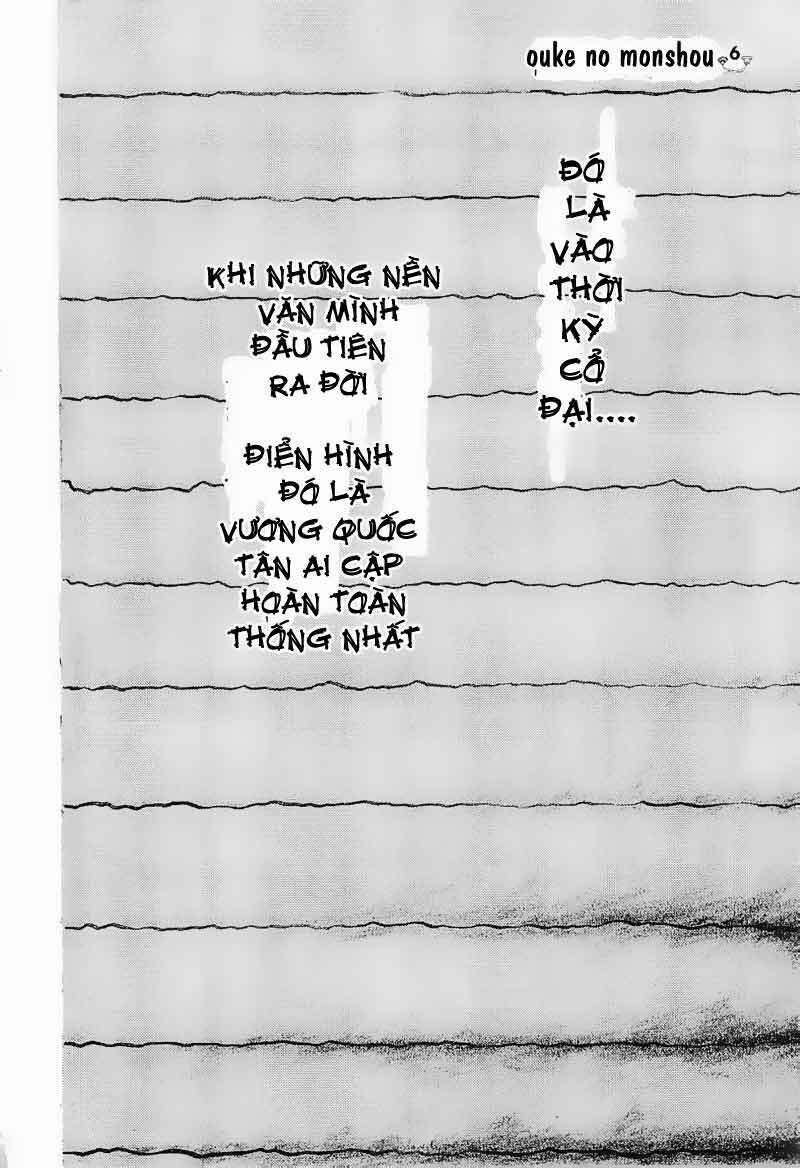 ouke no monshou 6
ĐÓ
LÀ
VÀO
THỜI
KỲ
CỔ
ĐẠI....
KHI NHỮNG NỀN
VĂN MÌNH
ĐẦU TIÊN
RA ĐỜI
ĐIỂN HÌNH
ĐÓ LÀ
VƯƠNG QUỐC
TÂN AI CẬP
HOÀN TOÀN
THỐNG NHẤT